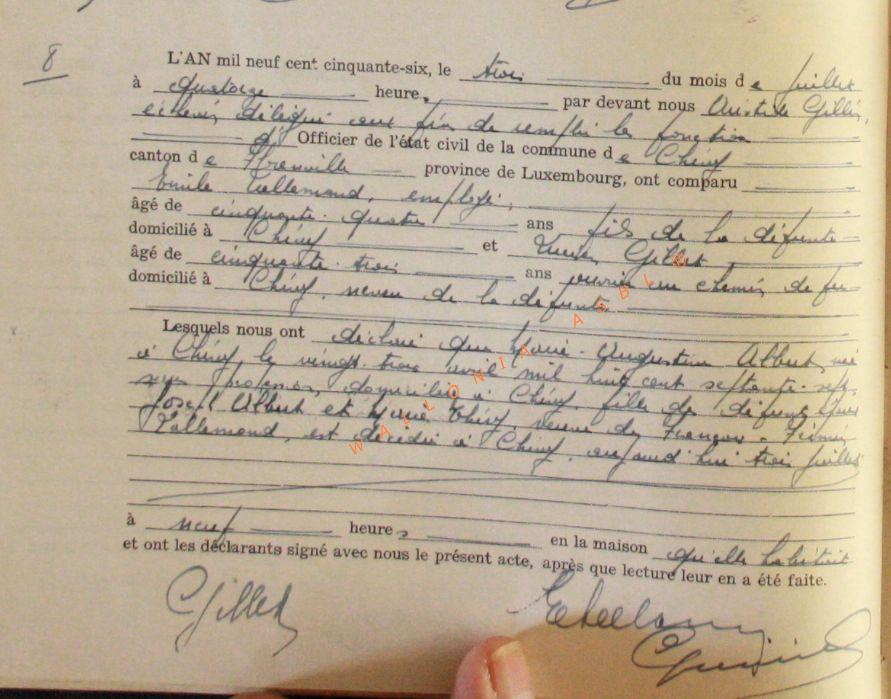 8
L'AN mil neuf cent cinquante-six, le trois du mois de juillet
à quatorze heures, par devant nous Aristide Gillet,
échevin délégué aux fins de remplir les fonctions
d' Officier de l'état civil de la commune de Chiny
canton de Florenville province de Luxembourg, ont comparu
Emile Lallemand, employé,
âgé de cinquante-quatre ans fils de la défunte
domicilié à Chiny et Gillet,
âgé de cinquante-trois ans ouvrier au chemin de fer
domicilié à Chiny, neveu de la défunte
Lesquels nous ont déclaré que Marie-Augustine Albert, née
à Chiny le vingt-trois avril mil huit cent septante-sept,
sans profession, domiciliée à Chiny, fille de défunts
Joseph Albert et Marie Thiry, veuve de François-Firmin
Lallemand, est décédée à Chiny, aujourd'hui trois juillet
à neuf heures en la maison qu'elle habitait
et ont les déclarants signé avec nous le présent acte, après que lecture leur en a été faite.
Gillet
WALLONIA ASBL